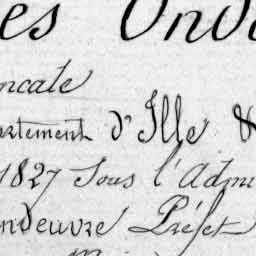 es Ond
ncale
artement d'Ille &
1827 Sous l'Admi
ndeuvre Préfet